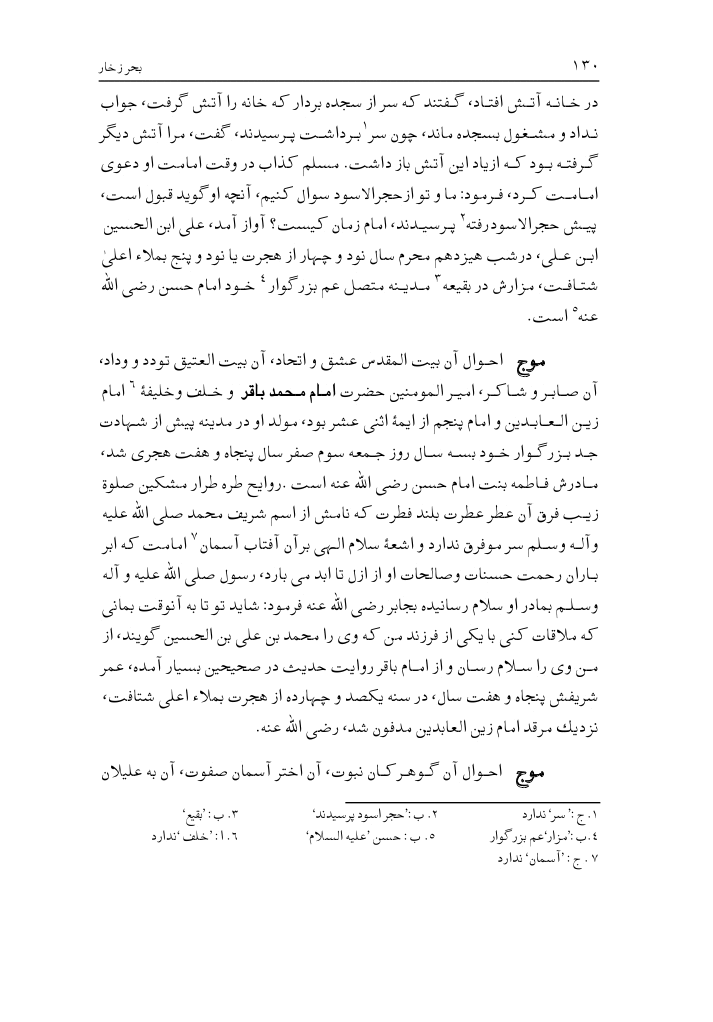 ۱۳۰ بحر زخار
در خانه آتش افتاد، گفتند که سر از سجده بردار که خانه را آتش گرفت، جواب
نداد و مشغول بسجده ماند، چون سر۱ برداشت پرسیدند، گفت، مرا آتش دیگر
گرفته بود که ازیاد این آتش باز داشت. مسلم کذاب در وقت امامت او دعوی
امامت کرد، فرمود: ما و تو ازحجرالاسود سوال کنیم، آنچه اوگوید قبول است،
پیش حجرالاسودرفته۲ پرسیدند، امام زمان کیست؟ آواز آمد، علی ابن الحسین
ابن علی، درشب هیزدهم محرم سال نود و چهار از هجرت یا نود و پنج بملاء اعلیٰ
شتافت، مزارش در بقیعه۳ مدینه متصل عم بزرگوار۴ خود امام حسن رضی الله
عنه۵ است.
موج احوال آن بیت المقدس عشق و اتحاد، آن بیت العتیق تودد و وداد،
آن صابر و شاکر، امیر المومنین حضرت امام محمد باقر و خلف وخلیفۀ۶ امام
زین العابدین و امام پنجم از ایمۀ اثنی عشر بود، مولد او در مدینه پیش از شهادت
جد بزرگوار خود بسه سال روز جمعه سوم صفر سال پنجاه و هفت هجری شد،
مادرش فاطمه بنت امام حسن رضی الله عنه است .روایح طره طرار مشکین صلوة
زیب فرق آن عطر عطرت بلند فطرت که نامش از اسم شریف محمد صلی الله علیه
وآله وسلم سر موفرق ندارد و اشعۀ سلام الهی برآن آفتاب آسمان۷ امامت که ابر
باران رحمت حسنات وصالحات او از ازل تا ابد می بارد، رسول صلی الله علیه و آله
وسلم بمادر او سلام رسانیده بجابر رضی الله عنه فرمود: شاید تو تا به آنوقت بمانی
که ملاقات کنی با یکی از فرزند من که وی را محمد بن علی بن الحسین گویند، از
من وی را سلام رسان و از امام باقر روایت حدیث در صحیحین بسیار آمده، عمر
شریفش پنجاه و هفت سال، در سنه یکصد و چهارده از هجرت بملاء اعلی شتافت،
نزدیك مرقد امام زین العابدین مدفون شد، رضی الله عنه.
موج احوال آن گوهر کان نبوت، آن اختر آسمان صفوت، آن به علیلان
۱. ج :' سر' ندارد ۲. ب :'حجر اسود پرسیدند' ۳. ب : 'بقیع'
۴.ب :'مزار'عم بزرگوار ۵. ب : حسن 'علیه السلام' ۶.ا: 'خلف 'ندارد
۷. ج : 'آسمان' ندارد